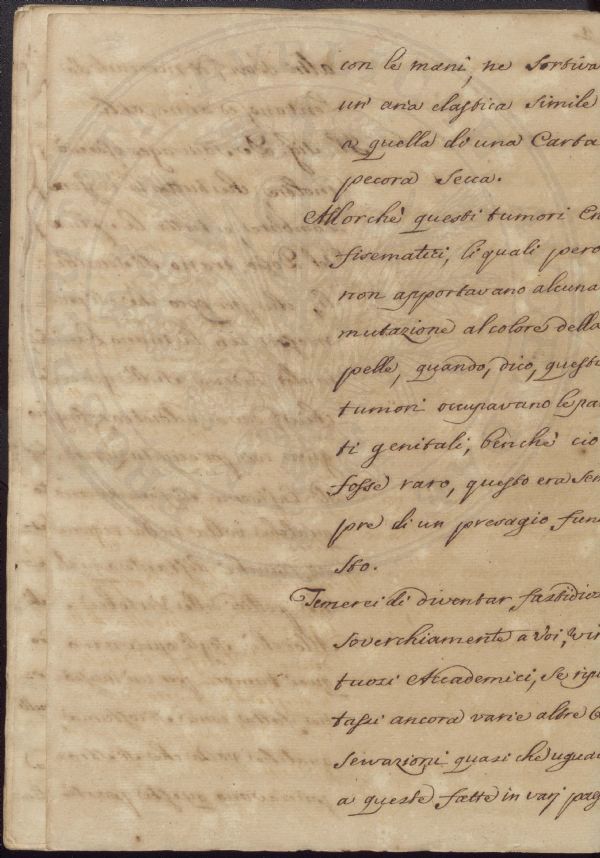 con le mani, ne sortiva
un' aria elastica simile
a quella di una Carta
pecora secca.
Allorchè questi tumori en
fisematici, li quali però
non apportavano alcuna
mutazione al colore della
pelle, quando, dico, questi
tumori occupavano le par
ti genitali, benchè ciò
fosse raro, questo era sem
pre di un presagio fune
sto.
Temerei di diventar fastidioso
soverchiamente a Voi, vir
tuosi Accademici, se ripor
tassi ancora varie altre os
servazioni quasi che uguali
a queste fatte in varj